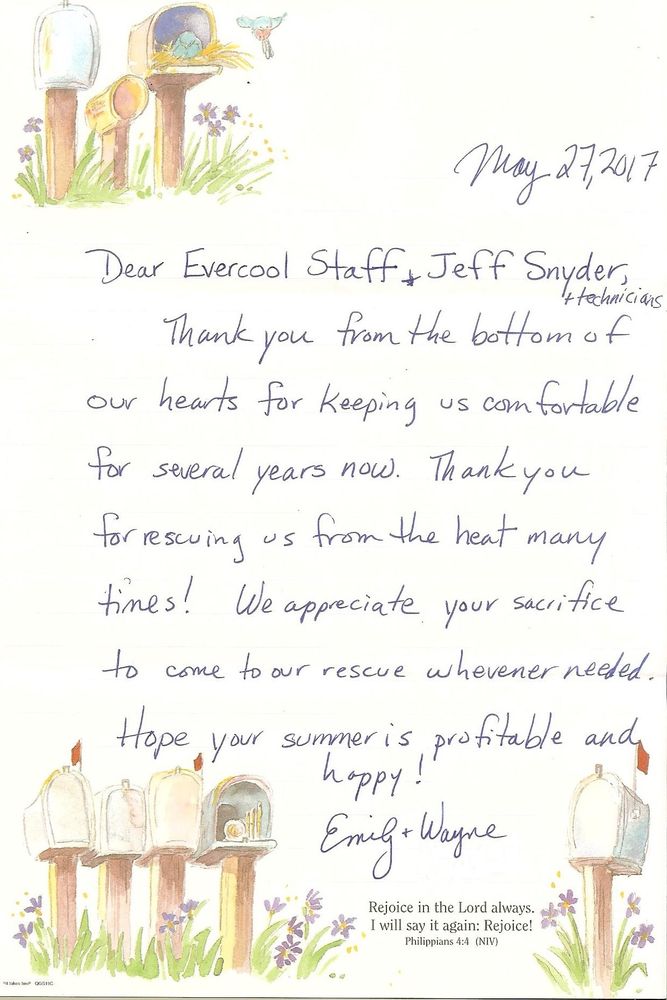 May 27, 2017
Dear Evercool Staff + Jeff Snyder,
+ technicians
Thank you from the bottom of
our hearts for keeping us comfortable
for several years now. Thank you
for rescuing us from the heat many
times! We appreciate your sacrifice
to come to our rescue whevener needed.
Hope your summer is profitable and
happy!
Emily + Wayne
Rejoice in the Lord always.
I will say it again: Rejoice!
Philippians 4:4 (NIV)